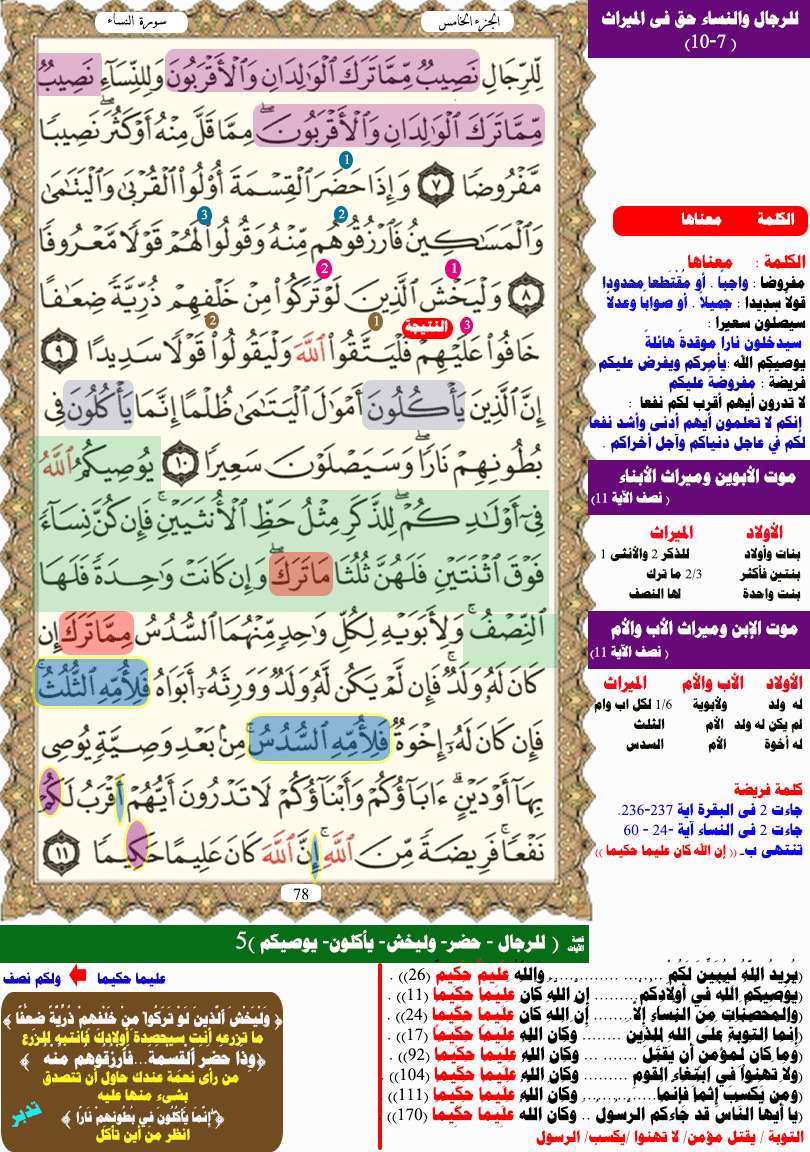 سورة النساء
الجزء الخامس
لِّلرِّجَالِ نَصِيبٌ مِّمَّا تَرَكَ ٱلْوَٰلِدَانِ وَٱلْأَقْرَبُونَ وَلِلنِّسَآءِ نَصِيبٌ
مِّمَّا تَرَكَ ٱلْوَٰلِدَانِ وَٱلْأَقْرَبُونَ مِمَّا قَلَّ مِنْهُ أَوْ كَثُرَ ۚ نَصِيبًا
مَّفْرُوضًا ٧ وَإِذَا حَضَرَ ٱلْقِسْمَةَ أُو۟لُوا۟ ٱلْقُرْبَىٰ وَٱلْيَتَٰمَىٰ
وَٱلْمَسَٰكِينُ فَٱرْزُقُوهُم مِّنْهُ وَقُولُوا۟ لَهُمْ قَوْلًا مَّعْرُوفًا
٨ وَلْيَخْشَ ٱلَّذِينَ لَوْ تَرَكُوا۟ مِنْ خَلْفِهِمْ ذُرِّيَّةً ضِعَٰفًا
خَافُوا۟ عَلَيْهِمْ النتيجة فَلْيَتَّقُوا۟ ٱللَّهَ وَلْيَقُولُوا۟ قَوْلًا سَدِيدًا ٩
إِنَّ ٱلَّذِينَ يَأْكُلُونَ أَمْوَٰلَ ٱلْيَتَٰمَىٰ ظُلْمًا إِنَّمَا يَأْكُلُونَ فِى
بُطُونِهِمْ نَارًا ۖ وَسَيَصْلَوْنَ سَعِيرًا ١٠ يُوصِيكُمُ ٱللَّهُ
فِىٓ أَوْلَٰدِكُمْ ۖ لِلذَّكَرِ مِثْلُ حَظِّ ٱلْأُنثَيَيْنِ ۚ فَإِن كُنَّ نِسَآءً
فَوْقَ ٱثْنَتَيْنِ فَلَهُنَّ ثُلُثَا مَا تَرَكَ ۖ وَإِن كَانَتْ وَٰحِدَةً فَلَهَا
ٱلنِّصْفُ ۚ وَلِأَبَوَيْهِ لِكُلِّ وَٰحِدٍ مِّنْهُمَا ٱلسُّدُسُ مِمَّا تَرَكَ إِن
كَانَ لَهُۥ وَلَدٌ ۚ فَإِن لَّمْ يَكُن لَّهُۥ وَلَدٌ وَوَرِثَهُۥٓ أَبَوَاهُ فَلِأُمِّهِ ٱلثُّلُثُ ۚ
فَإِن كَانَ لَهُۥٓ إِخْوَةٌ فَلِأُمِّهِ ٱلسُّدُسُ ۚ مِنۢ بَعْدِ وَصِيَّةٍ يُوصِى
بِهَآ أَوْ دَيْنٍ ۗ ءَابَآؤُكُمْ وَأَبْنَآؤُكُمْ لَا تَدْرُونَ أَيُّهُمْ أَقْرَبُ لَكُمْ
نَفْعًا ۚ فَرِيضَةً مِّنَ ٱللَّهِ ۗ إِنَّ ٱللَّهَ كَانَ عَلِيمًا حَكِيمًا ١١
78
للرجال والنساء حق فى الميراث
(10-7 )
الكلمة معناها
الكلمة : معناها
مفروضا : واجباً . أو مُقْتَطعاً محدودا
قولا سديدا : جميلاً . أو صواباً وعدلاً
سيصلون سعيرا :
سيدخلون نارا موقدة هائلة
يوصيكم الله :يأمركم ويفرض عليكم
فريضة : مفروضة عليكم
لا تدرون أيهم أقرب لكم نفعا :
إنكم لا تعلمون أيهم أدنى وأشد نفعا
لكم في عاجل دنياكم وآجل أخراكم .
موت الأبوين وميراث الأبناء
( نصف الآية 11)
الأولاد الميراث
بنات وأولاد للذكر 2 والأنثى 1
بنتين فأكثر 2/3 ما ترك
بنت واحدة لها النصف
موت الإبن وميراث الأب والأم
( نصف الآية 11)
الأولاد الأب والأم الميراث
له ولد ولأبوية 1/6 لكل اب وام
لم يكن له ولد الأم الثلث
له أخوة الأم السدس
كلمة فريضة
جاءت 2 فى البقرة اية 237-236.
جاءت 2 فى النساء آية -24 - 60
تنتهى بـ (( إن الله كان عليما حكيما ))
قصة الآيات ( للرجال - حضر- وليخش- يأكلون- يوصيكم )5
(يريد الله ليبين لكم ............ والله عليم حكيم ((26)) .
(يوصيكم الله في أولادكم ........ إن الله كان عليما حكيما ((11)) .
(والمحصنات من النساء إلا ........ إن الله كان عليما حكيما ((24))
(إنما التوبة على الله للذين ........ وكان الله عليما حكيما ((17)) .
(وما كان لمؤمن أن يقتل ........ وكان الله عليما حكيما ((92))
(ولا تهنوا في ابتغاء القوم ........ وكان الله عليما حكيما ((104))
(ومن يكسب إثما فإنما............ وكان الله عليما حكيما ((111))
(يا أيها الناس قد جاءكم الرسول .. وكان الله عليما حكيما ((170))
التوبة / يقتل مؤمن/ لا تهنوا /يكسب/ الرسول
عليما حكيما ولكم نصف
﴿ وَلْيَخْشَ الَّذِينَ لَوْ تَرَكُوا مِنْ خَلْفِهِمْ ذُرِّيَّةً ضِعَافًا ﴾
ما تزرعه أنت سيحصدة أولادك فانتبه للزرع
﴿وإذا حضر القسمة...فارزقوهم منه ﴾
من رأى نعمة عندك حاول أن تتصدق
بشىء منها عليه
﴿ إِنَّمَا يَأْكُلُونَ فِي بُطُونِهِمْ نَارًا ﴾
انظر من أين تأكل
تدبر